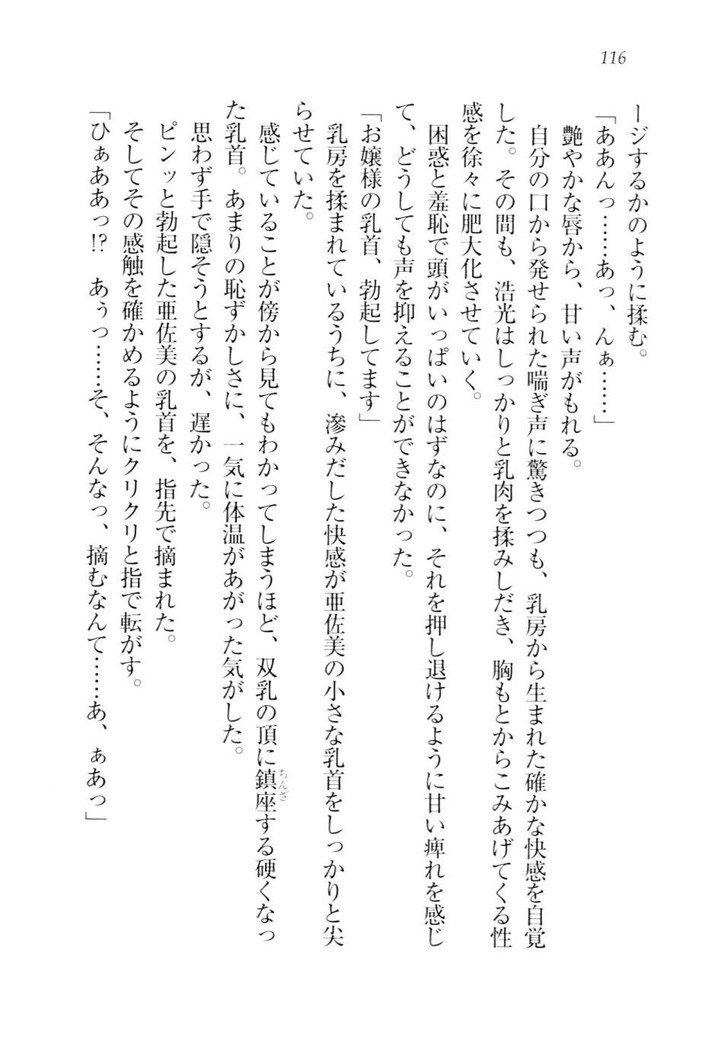 116
ージするかのように揉む。
「ああんっ……あっ、んぁ……」
艶やかな唇から、甘い声がもれる。
自分の口から発せられた喘ぎ声に驚きつつも、乳房から生まれた確かな快感を自覚
した。その間も、浩光はしっかりと乳肉を揉みしだき、胸もとからこみあげてくる性
感を徐々に肥大化させていく。
困惑と羞恥で頭がいっぱいのはずなのに、それを押し退けるように甘い痺れを感じ
て、どうしても声を抑えることができなかった。
「お嬢様の乳首、勃起してます」
乳房を揉まれているうちに、滲みだした快感が亜佐美の小さな乳首をしっかりと尖
らせていた。
感じていることが傍から見てもわかってしまうほど、双乳の頂に鎮座ちんざする硬くなっ
た乳首。あまりの恥ずかしさに、一気に体温があがった気がした。
思わず手で隠そうとするが、遅かった。
ピンッと勃起した亜佐美の乳首を、指先で摘まれた。
そしてその感触を確かめるようにクリクリと指で転がす。
「ひぁああっ!? あぅっ……そ、そんなっ、摘むなんて……あ、ぁあっ」